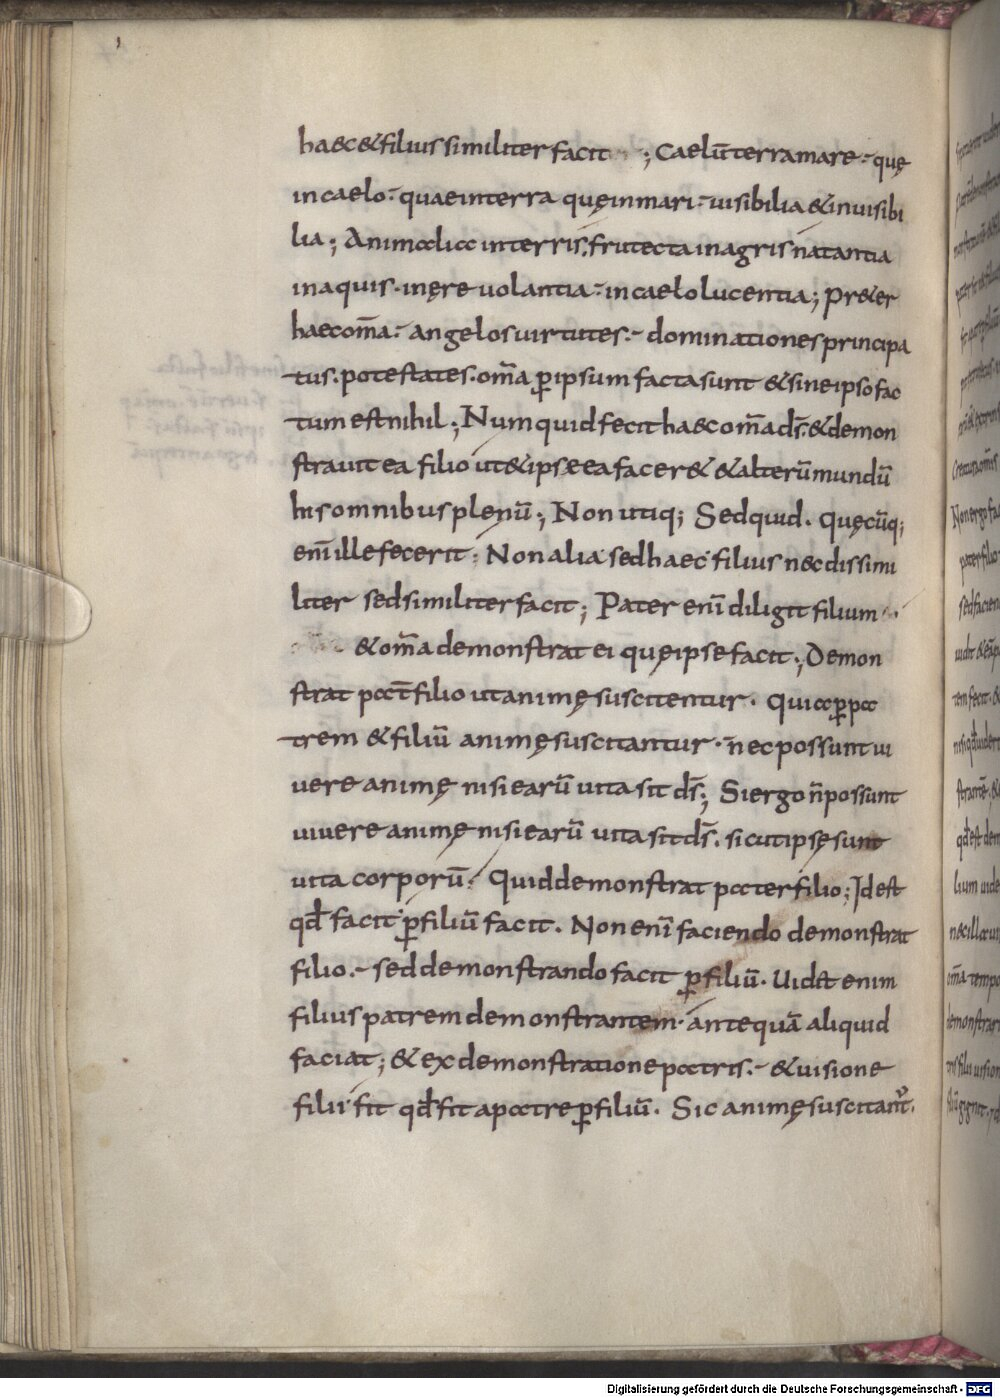 haec & filius similiter facit ; Caelū terra mare · quę
in caelo · quae in terra quę in mari · uisibilia & inuisibi
lia ; Animalia in terris, frutecta in agris natantia
in aquis · in ęre uolantia · in caelo lucentia ; Pr&er
haec om̄a · angelos uirtutes · dominationes principa
tus · potestates · om̄a ꝑ ipsum facta sunt & sine ipso fac
tum est nihil ; Numquid fecit haec om̄a d̄s & demon
strauit ea filio ut & ipse ea facer& & alterū mundū
his omnibus plenū ; Non utiq; Sed quid · Quęcūq;
eni͞ ille fecerit ; Non alia sed haec filius nec dissimi
liter sed similiter facit ; Pater eni͞ diligit filium
& om̄a demonstrat ei quę ipse facit ; Demon
strat pat̄ filio ut animę suscitentur · Quia ꝑ pa
trem & filiū animę suscitantur · nec possunt ui
uere animę nisi earū uita sit d̄s ; Si ergo n̄ possunt
uiuere animę nisi earū uita sit d̄s · sicut ipsę sunt
uita corporū · Quid demonstrat pater filio ; Id est
qd̄ facit ꝑ filiū facit · Non eni͞ faciendo demonstrat
filio · sed demonstrando facit ꝑ filiū · Uid& enim
filius patrem demonstrantem · antequā aliquid
faciat ; & ex demonstratione patris · & uisione
filii fit qd̄ fit a patre ꝑ filiū · Sic animę suscitant᷑ ·
Digitalisierung gefördert durch die Deutsche Forschungsgemeinschaft - DFG